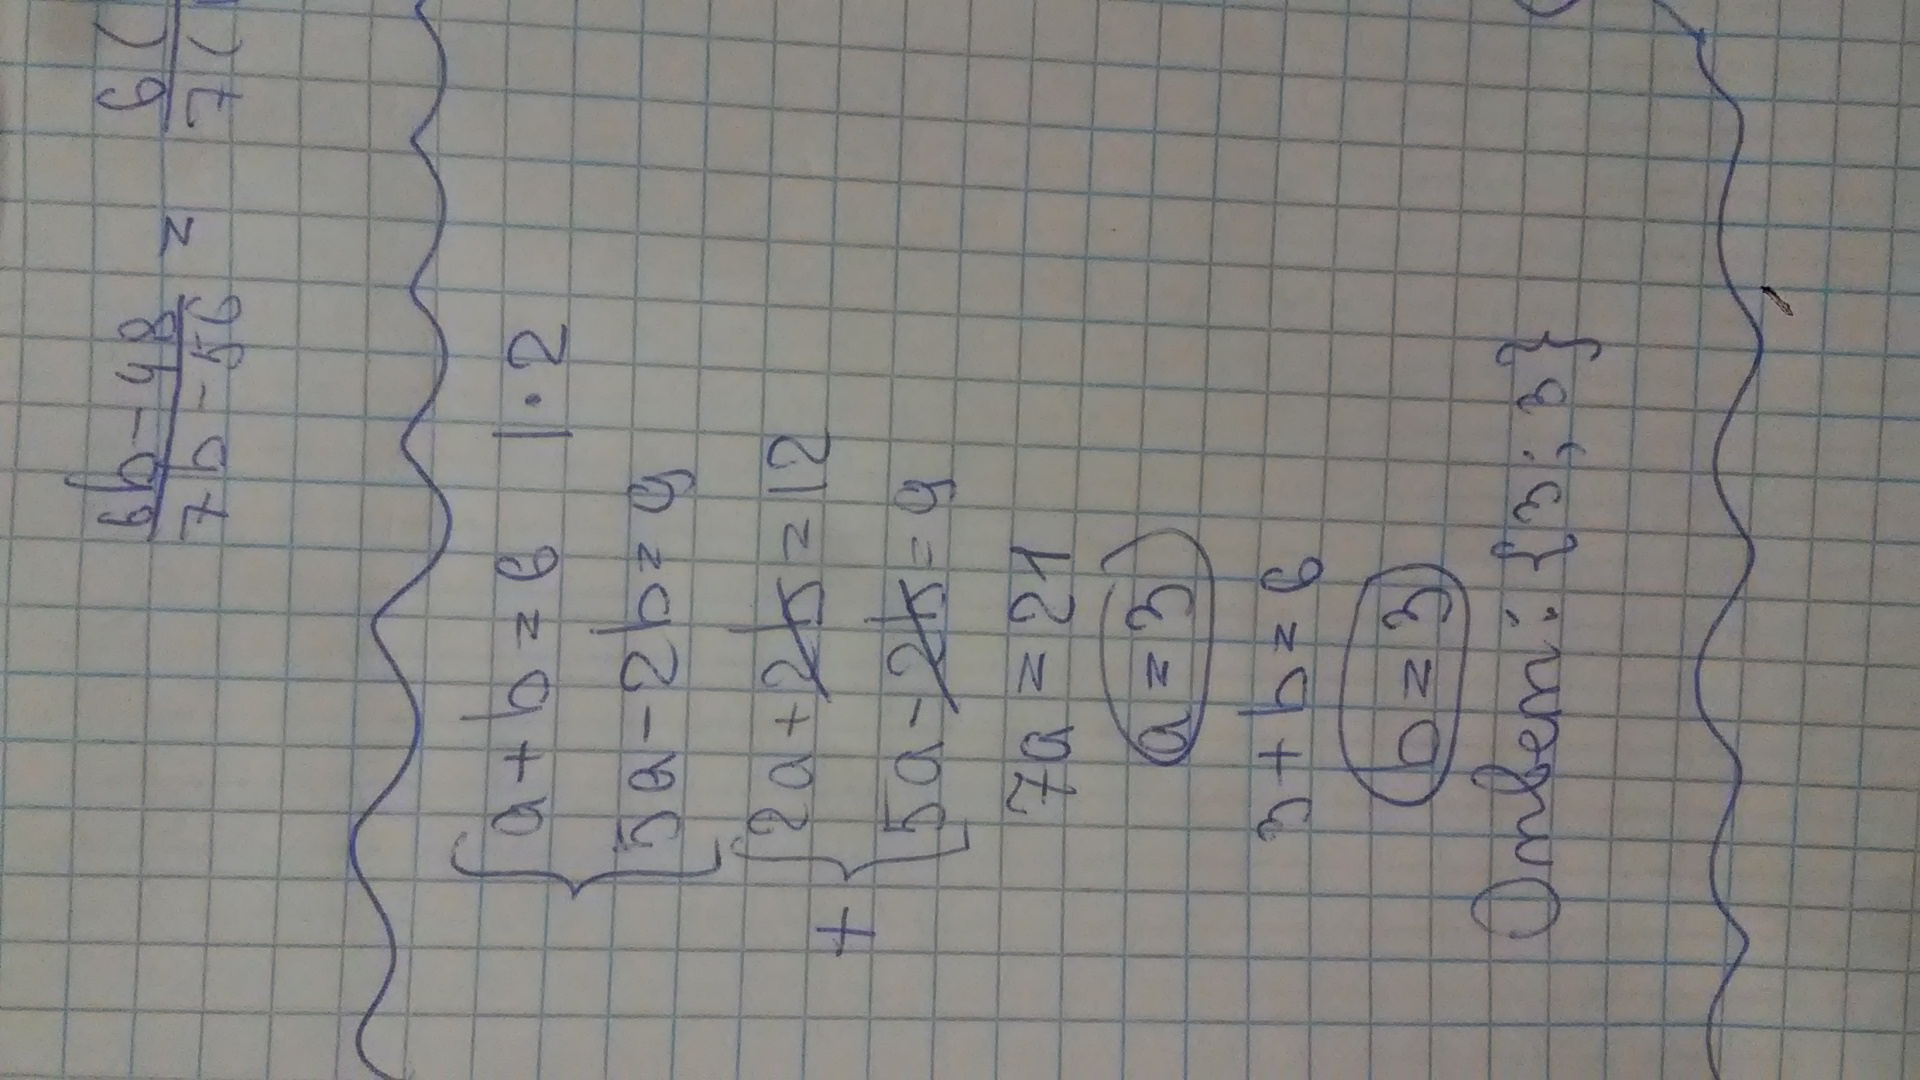 6b-48
7b-56
=
6(
7(
a+b=6 |·2
5a-2b=9
2a+2b=12
+
5a-2b=9
7a=21
a=3
3+b=6
b=3
Ответ: {3; 3}